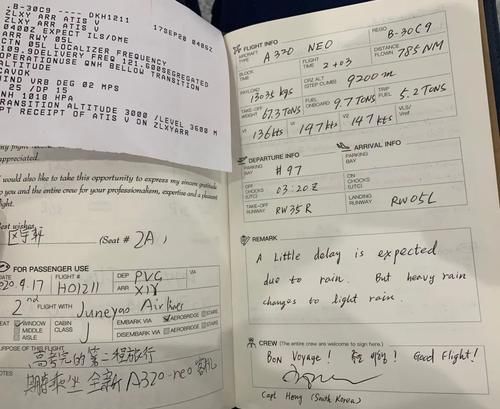 .B-30C9 ---- DKH1211
ZLXY ARR ATIS V
ZLXY ATIS V 17SEP20 0486Z
0400Z EXPECT ILS/DME
ARR RWY 05L
CTN 05L LOCALIZER FREQUENCY
109.9DELIVERY FREQ 121.600SEGREGATED
OPERATIONUSE QNH BELLOW TRANSITION
ALTITUDE
CAVOK
WIND VRB DEG 02 MPS
T 25 /DP 15
QNH 1018 HPA
TRANSITION ALTITUDE 3000 /LEVEL 3600 M
RECEIPT OF ATIS V ON ZLXYARR
appreciated.
I would also like to take this opportunity to express my sincere gratitude
to you and the entire crew for your professionalism, expertise and a pleasant
flight.
Best wishes
(Seat # 2A)
FOR PASSENGER USE
DATE
2020.9.17
FLIGHT #
HO1211
DEP PVG
ARR XIY
VIA
2nd FLIGHT WITH Juneyao Airlines
SEAT WINDOW
MIDDLE
AISLE
CABIN CLASS
J
EMBARK VIA AEROBRIDGE STAIRS
DISEMBARK VIA AEROBRIDGE STAIRS
PURPOSE OF THIS FLIGHT
高考完的第二程旅行
NOTES
期待乘坐全新A320-neo客机
FLIGHT INFO
AIRCRAFT TYPE A320 NEO
REG# B-30C9
BLOCK TIME
FLIGHT TIME 2+03
DISTANCE FLOWN 785NM
PAYLOAD 13035 kgs
CRZ ALT (STEP CLIMB) 9200m
TAKE-OFF WEIGHT 67.3TONS
FUEL ONBOARD 9.7TONS
TRIP FUEL 5.2TONS
V1 136kts
VR 147kts
V2 147kts
VLS/Vref
DEPARTURE INFO
ARRIVAL INFO
PARKING BAY #97
PARKING BAY
OFF CHOCKS (UTC) 03:20Z
ON CHOCKS (UTC)
TAKE-OFF RUNWAY RW35R
LANDING RUNWAY RW05L
REMARK
A Little delay is expected
due to rain. But heavy rain
changes to light rain.
CREW (The entire crew are welcome to sign here.)
Bon Voyage! Good Flight!
Capt Hong (South Korea)